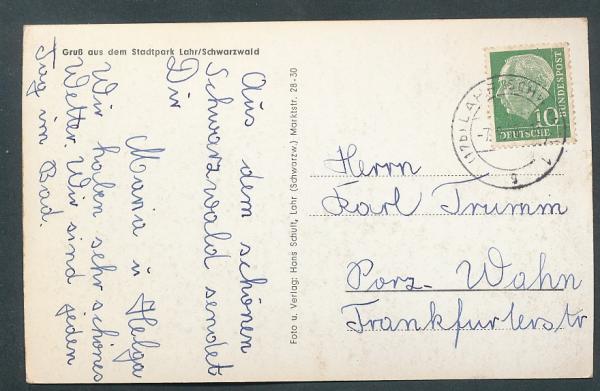 Gruß aus dem Stadtpark Lahr/Schwarzwald
Aus dem schönen
Schwarzwald sendet
Dir
Maria u Helga
Wir haben sehr schönes
Wetter. Wir sind jeden
Tag im Bad.
Foto u. Verlag: Hans Schult, Lahr (Schwarzw.) Marktstr. 28-30
10
DEUTSCHE
BUNDESPOST
(17b) LAHR
-7.
g
Herrn
Karl Trumm
Porz-Wahn
Frankfurterstr